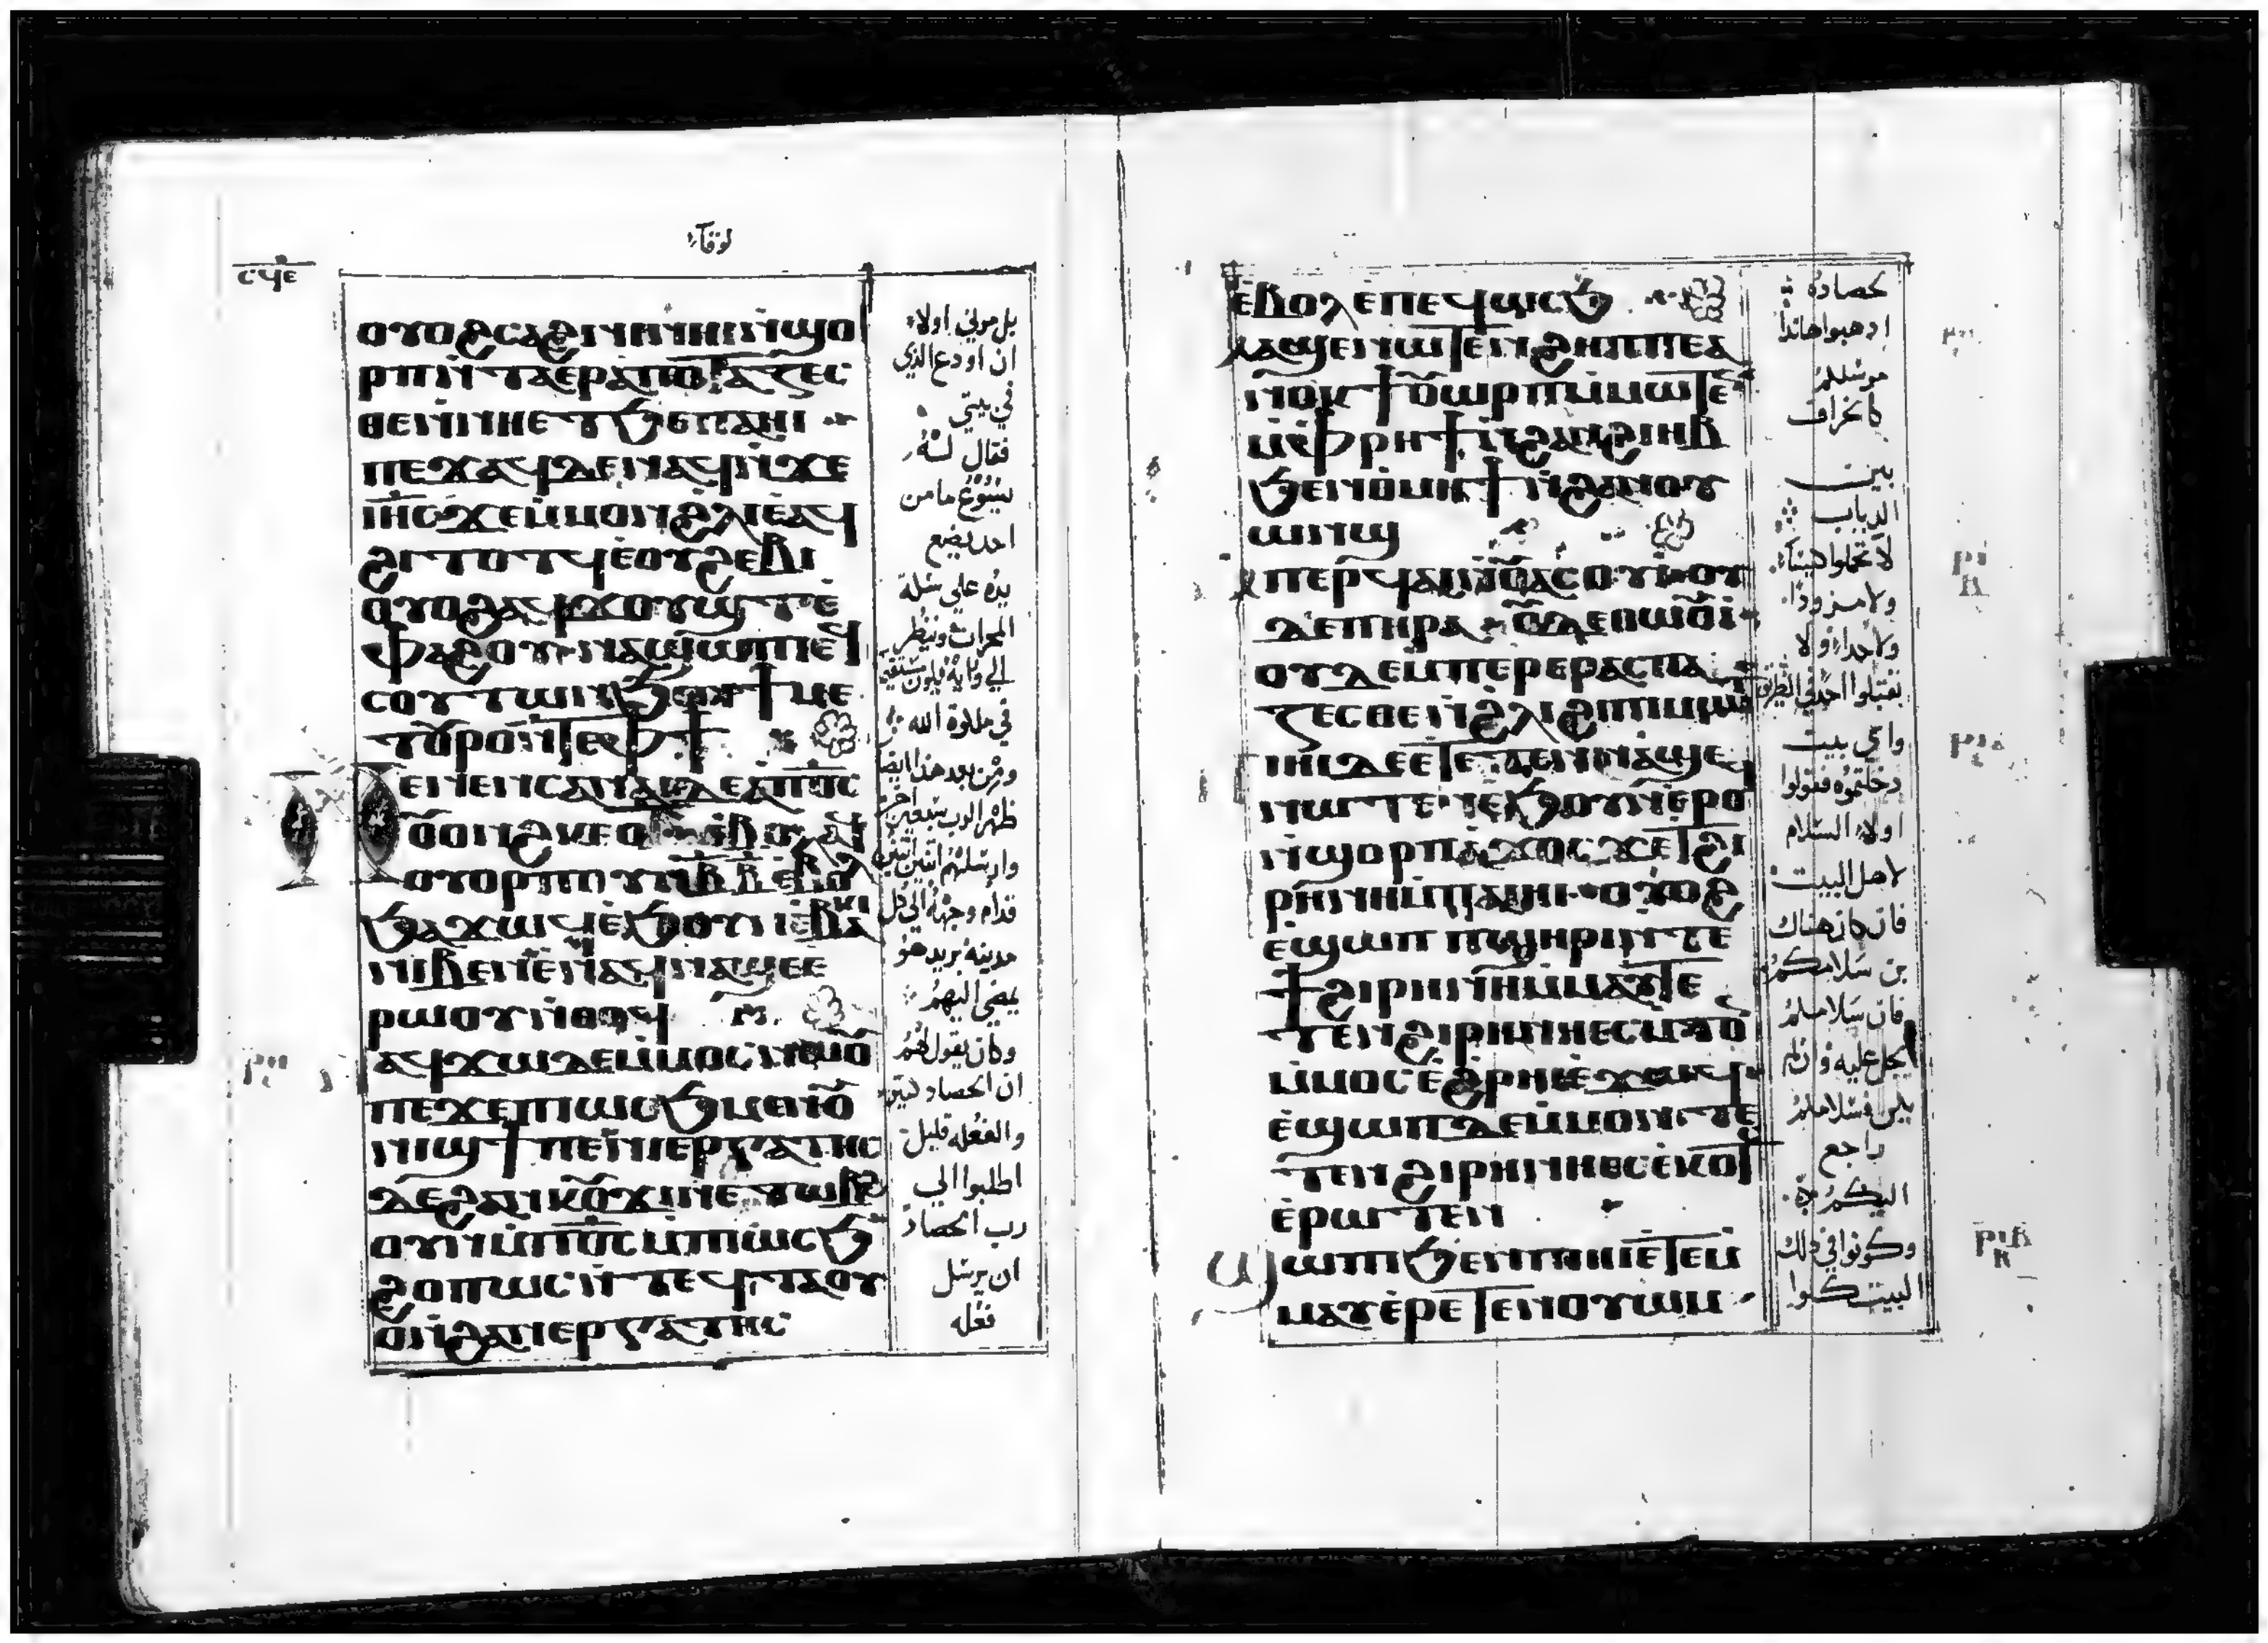 لوقا
ⲥϥⲉ
ⲟⲩⲟϩⲥⲁϩⲛⲓⲛⲏⲓⲛ̀ϣⲟ
ⲣⲡⲛ̀ⲧⲁⲉⲣⲁⲡⲟⲧⲁⲍⲉⲥ
ⲑⲉⲛ̀ⲛⲏⲉⲧϧⲉⲛⲡⲁⲏⲓ
ⲡⲉϫⲁϥⲇⲉⲛⲁϥⲛ̀ϫⲉ
ⲓⲏ̅ⲥ̅ϫⲉⲙ̀ⲙⲟⲛϩⲗⲓⲉ̀ⲁϥ
ϩⲓⲧⲟⲧϥⲉ̀ⲟⲩϩⲉⲃⲓ
ⲟⲩⲟϩⲁϥϫⲟⲩϣⲧⲉ̀
ⲫⲁϩⲟⲩⲛⲁϣϣⲱⲡⲉϥ
ⲥⲟⲩⲧⲱⲛϧⲉⲛϯⲙⲉ
ⲧⲟⲩⲣⲟⲛ̀ⲧⲉⲫϯ
ⲉⲛⲉⲛⲥⲁⲛⲁⲓⲇⲉⲁⲡϭⲥ
ⲟⲩⲟⲛϩⲕⲉⲟ ⲉ̀ⲃⲟⲗⲁϥ
ⲟⲩⲟⲣⲡⲟⲩⲛ̀ⲃ̅ⲃ̅ⲉ̀ⲃⲟⲗ
ϧⲁϫⲱϥⲉ̀ϧⲟⲩⲛⲉ̀ⲃⲁⲕⲓ
ⲛⲓⲃⲉⲛⲉ̀ⲛⲁϥⲛⲁϣⲉⲉ̀
ⲣⲱⲟⲩⲛ̀ⲑⲟϥ
ⲁϥϫⲱⲇⲉⲙ̀ⲙⲟⲥⲛⲱⲟⲩ
ϫⲉⲡⲱⲥϧⲙⲉⲛⲟⲩ
ⲛⲓϣϯⲡⲉⲛⲓⲉⲣⲅⲁⲧⲏⲥ
ⲇⲉϩⲁⲛⲕⲟⲩϫⲓⲛⲉⲧⲱⲃϩ
ⲟⲩⲛⲙ̀ⲡϭⲥⲙ̀ⲡⲱⲥϧ
ϩⲟⲡⲱⲥⲛ̀ⲧⲉϥⲧⲁⲟⲩ
ⲟⲛ̀ϩⲁⲛⲉⲣⲅⲁⲧⲏⲥ
بل مرلي اولا
ان اودع الذي
في بيتي
فقال له
يسوع ما من
احد يضع
يده علي سكة
المحراث وينظر
الي ورايه فيكون مستقيم
في ملكوة الله
ومن بعد هذا ايضا
ظهر الرب سبعين اخر
وارسلهم اثنين اثنين
قدام وجهه الي كل
مدينة يريد هو
يمضي اليهم
وكان يقول لهم
ان الحصاد كثير
والفعله قليل
اطلبوا الي
رب الحصاد
ان يرسل
فعله
ⲉ̀ⲃⲟⲗⲉ̀ⲡⲉϥⲱⲥϧ
ⲙⲁϣⲉⲛⲱⲧⲉⲛϩⲏⲡⲡⲉⲁ
ⲛⲟⲕϯⲟⲩⲱⲣⲡⲙ̀ⲙⲱⲧⲉⲛ
ⲙ̀ⲫⲣⲏϯⲛ̀ϩⲁⲛϩⲓⲏⲃ
ϧⲉⲛⲑ̀ⲙⲏϯⲛ̀ϩⲁⲛⲟⲩ
ⲱⲛϣ
ⲙⲡⲉⲣϥⲁⲓⲁⲥⲟⲩⲓ ⲟⲩ
ⲇⲉⲡⲏⲣⲁ ⲟⲩⲇⲉⲑⲱⲟⲩⲓ
ⲟⲩⲇⲉⲙ̀ⲡⲉⲣⲉⲣⲁⲥⲡⲁ
ⲍⲉⲥⲑⲉⲛ̀ϩⲗⲓϩⲓⲡⲓⲙⲱⲓⲧ
ⲡⲓⲏⲓⲇⲉⲉ̀ⲧⲉⲧⲉⲛⲛⲁϣⲉ
ⲛⲱⲧⲉⲛⲉ̀ϧⲟⲩⲛⲉ̀ⲣⲟϥ
ⲛ̀ϣⲟⲣⲡⲁ̀ϫⲟⲥϫⲉⲧϩⲓ
ⲣⲏⲛⲏⲙ̀ⲡⲁⲓⲏⲓ ⲟⲩⲟϩ
ⲉ̀ϣⲱⲡⲡϣⲏⲣⲓⲛ̀ⲧⲉ
ϯϩⲓⲣⲏⲛⲏⲙ̀ⲙⲁⲩⲧⲉ
ⲧⲉⲛϩⲓⲣⲏⲛⲏⲉⲥⲙ̀ⲧⲟⲛ
ⲙ̀ⲙⲟⲥⲉ̀ϩⲣⲏⲓⲉ̀ϫⲱϥ
ⲉ̀ϣⲱⲡⲇⲉⲙ̀ⲙⲟⲛⲧⲉ
ⲧⲉⲛϩⲓⲣⲏⲛⲏⲉⲥⲉ̀ⲕⲟⲧⲥ
ⲉ̀ⲣⲱⲧⲉⲛ
ϣⲱⲡⲓϧⲉⲛⲡⲓⲏⲓⲉ̀ⲧⲉⲙ̀
ⲙⲁⲩⲉ̀ⲣⲉⲧⲉⲛⲟⲩⲱⲙ
لحصاده
اذهبوا هاندا
مرسلكم
كالخراف
بين
الدياب
لا تحملوا هميانا
ولا مزودا
ولا حداء ولا
تقبلوا احد في الطريق
واي بيت
دخلتموه فقولوا
اولا السلام
لاهل البيت
فان كان هناك
بن سلامكم
فان سلامكم
يحل عليه وان لم
يكن فسلامكم
راجع
اليكم
وكونوا في ذلك
البيت كلوا